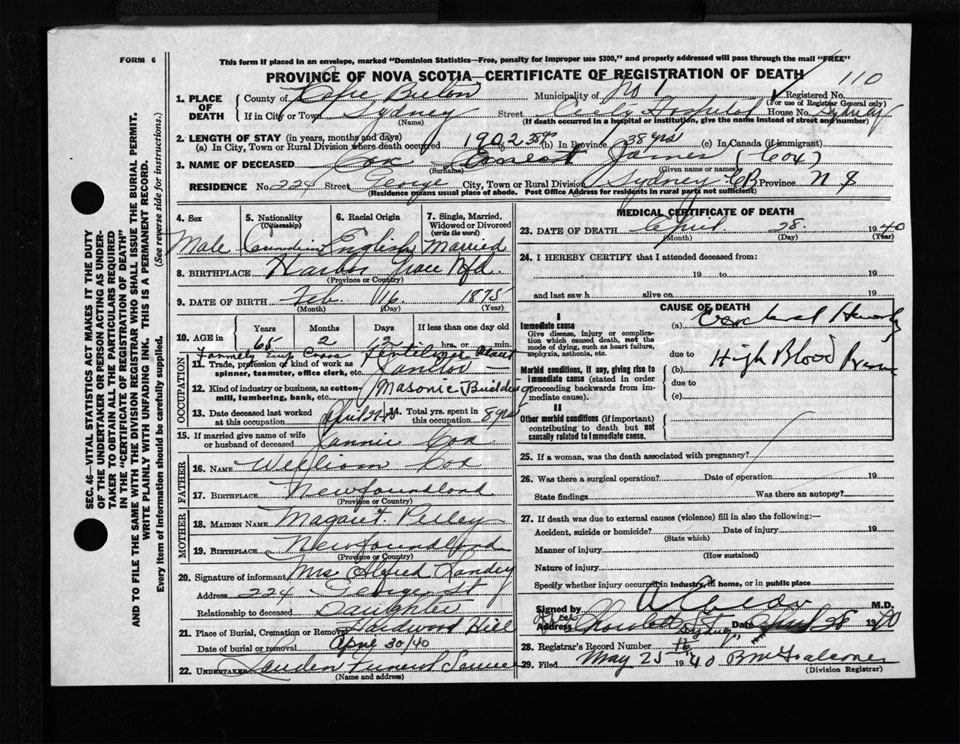 FORM 6
This form if placed in an envelope, marked "Dominion Statistics—Free, penalty for improper use $300," and properly addressed will pass through the mail "FREE"
PROVINCE OF NOVA SCOTIA—CERTIFICATE OF REGISTRATION OF DEATH
110
SEC. 46—VITAL STATISTICS ACT MAKES IT THE DUTY
OF THE UNDERTAKER OR PERSON ACTING AS UNDER-
TAKER TO OBTAIN ALL THE PARTICULARS REQUIRED
IN THE "CERTIFICATE OF REGISTRATION OF DEATH"
AND TO FILE THE SAME WITH THE DIVISION REGISTRAR WHO SHALL ISSUE THE BURIAL PERMIT.
WRITE PLAINLY WITH UNFADING INK. THIS IS A PERMANENT RECORD.
Every Item of Information should be carefully supplied. (See reverse side for instructions.)
1. PLACE OF DEATH
County of Cape Breton Municipality of No 1 Registered No.
(For use of Registrar General only)
If in City or Town Sydney Street City Hospital House No. Sydney
(Name) (If death occurred in a hospital or institution, give the name instead of street and number)
2. LENGTH OF STAY (in years, months and days)
(a) In City, Town or Rural Division where death occurred 1902 38 yrs (b) In Province 38 yrs (c) In Canada (if immigrant)
3. NAME OF DECEASED Cox Ernest James (Cox)
(Surname) (Given name or names)
RESIDENCE No. 224 Street George City, Town or Rural Division Sydney CB Province N S
(Residence means usual place of abode. Post Office Address for residents in rural parts not sufficient)
4. Sex
Male
5. Nationality
(Citizenship)
Canadian
6. Racial Origin
English
7. Single, Married, Widowed or Divorced
(write the word)
Married
8. BIRTHPLACE Harbor Grace Nfld.
(Province or Country)
9. DATE OF BIRTH Feb. 16 1875
(Month) (Day) (Year)
10. AGE in Years Months Days If less than one day old
65 2 12 hrs. or min.
OCCUPATION
Formely emp Cross Fertilizer Plant
11. Trade, profession or kind of work as spinner, teamster, office clerk, etc. Janitor
12. Kind of industry or business, as cotton-mill, lumbering, bank, etc. Masonic Building
13. Date deceased last worked at this occupation April 27/40
14. Total yrs. spent in this occupation 8 yrs
15. If married give name of wife or husband of deceased Jannie Cox
FATHER
16. NAME William Cox
17. BIRTHPLACE Newfoundland
(Province or Country)
MOTHER
18. MAIDEN NAME Magaret
19. BIRTHPLACE Newfoundland
(Province or Country)
20. Signature of informant Mrs Alfred Landry
Address 224 George St
Relationship to deceased Daughter
21. Place of Burial, Cremation or Removal Hardwood Hill
Date of burial or removal Apre 30/40
22. UNDERTAKER Funeral Service
(Name and address)
MEDICAL CERTIFICATE OF DEATH
23. DATE OF DEATH April 28 1940
(Month) (Day) (Year)
24. I HEREBY CERTIFY that I attended deceased from:
19 to 19
and last saw h alive on 19
CAUSE OF DEATH
I
Immediate cause
Give disease, injury or complication which caused death, not the mode of dying, such as heart failure, asphyxia, asthenia, etc.
(a) Cerebral
due to High Blood Pressure
Morbid conditions, if any, giving rise to immediate cause (stated in order proceeding backwards from immediate cause).
(b)
due to
(c)
II
Other morbid conditions (if important) contributing to death but not causally related to immediate cause.
25. If a woman, was the death associated with pregnancy?
26. Was there a surgical operation? Date of operation 19
State findings Was there an autopsy?
27. If death was due to external causes (violence) fill in also the following:
Accident, suicide or homicide? Date of injury 19
(State which)
Manner of injury
(How sustained)
Nature of injury
Specify whether injury occurred in industry, in home, or in public place
Signed by M.D.
Address Sydney Date April 28 1940
28. Registrar's Record Number
29. Filed May 25 1940
(Division Registrar)